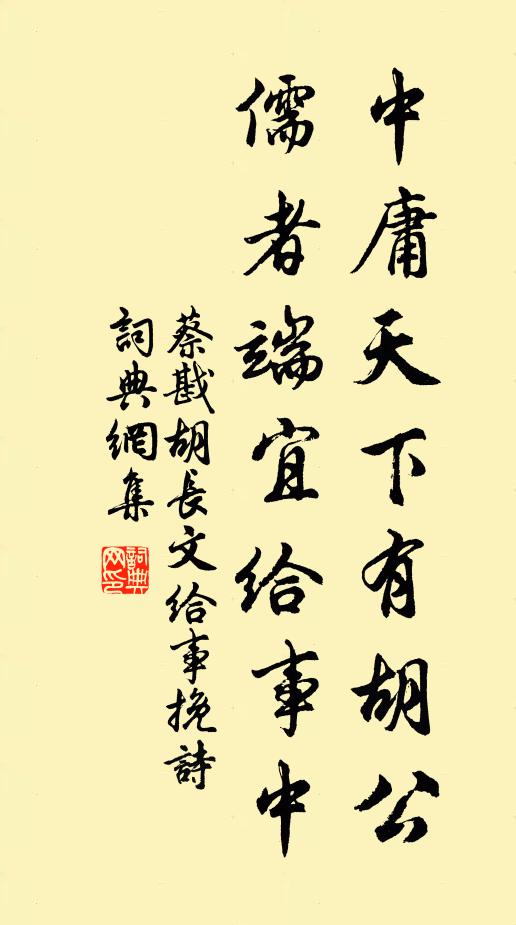 中庸天下有胡公
儒者端宜給事中
蔡戡胡長文給事挽詩
詞典網集
詞典網印